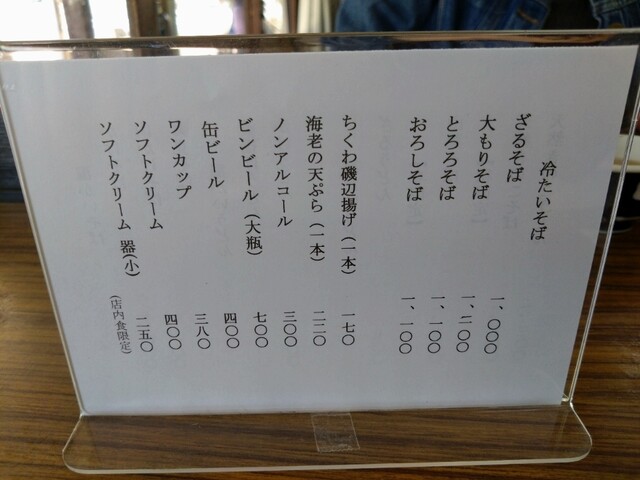 冷たいそば
ざるそば 一、〇〇〇
大もりそば 一、二〇〇
とろろそば 一、一〇〇
おろしそば 一、一〇〇
ちくわ磯辺揚げ（一本） 一七〇
海老の天ぷら（一本） 二二〇
ノンアルコール 三〇〇
ビンビール（大瓶） 七〇〇
缶ビール 四〇〇
ワンカップ 三八〇
ソフトクリーム 四〇〇
ソフトクリーム 器(小) 二五〇
(店内食限定)